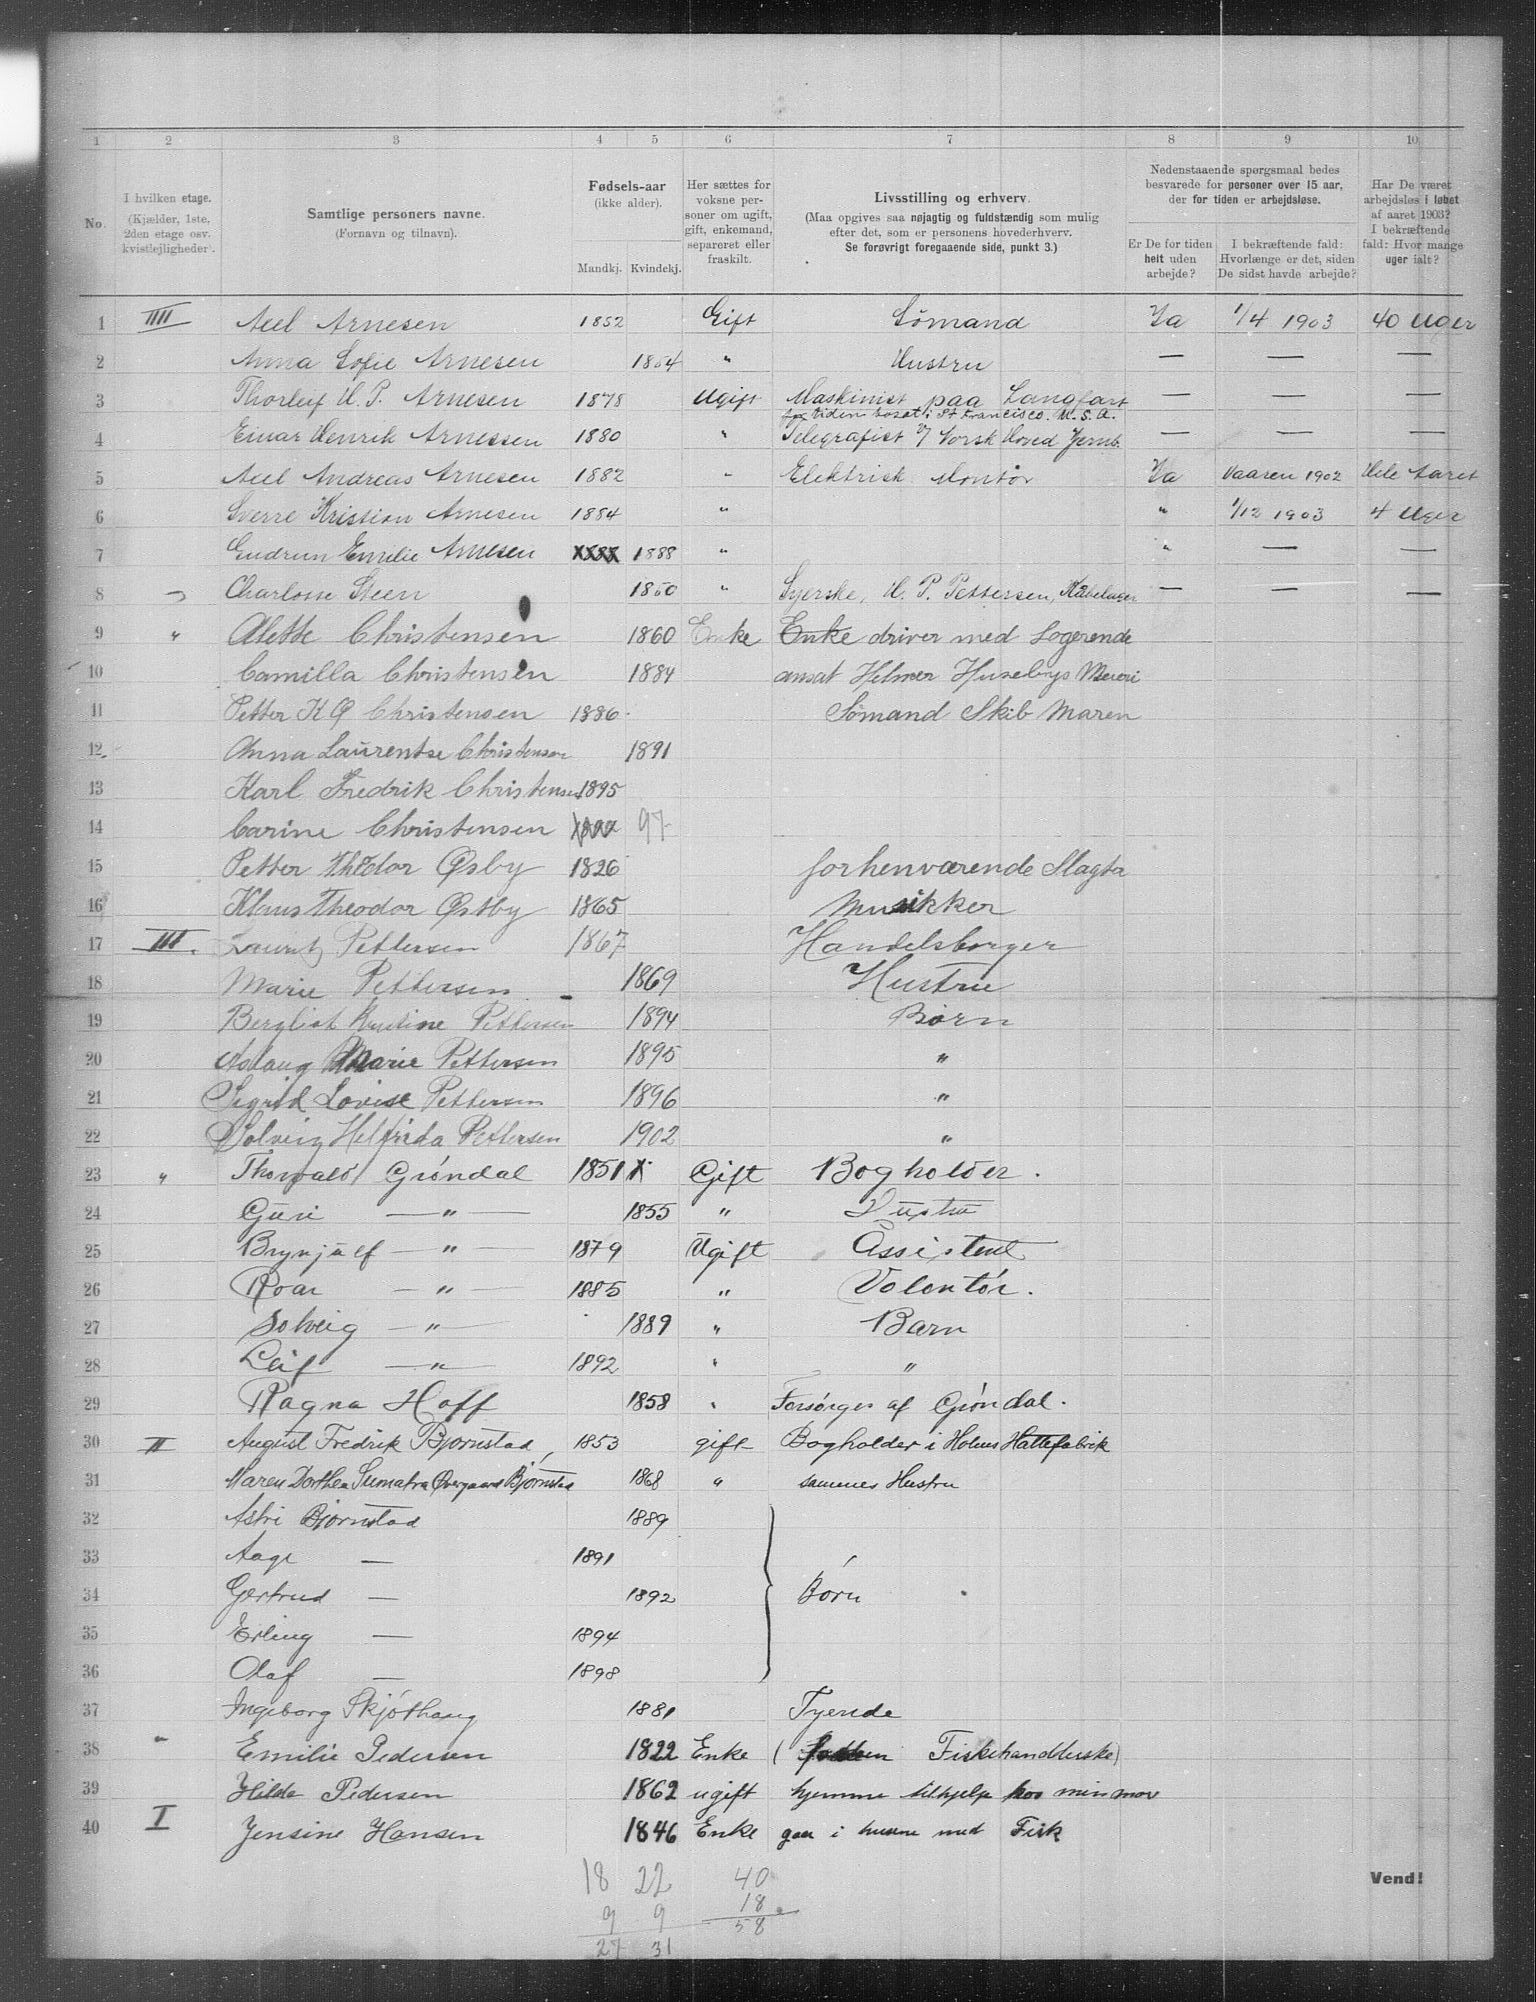 1 2 3 4 5 6 7 8 9 10
No. I hvilken etage. (Kjælder, 1ste, 2den etage osv. kvistlejligheder). Samtlige personers navne. (Fornavn og tilnavn). Fødsels-aar (ikke alder). Mandkj. Kvindekj. Her sættes for voksne personer om ugift, gift, enkemand, separeret eller fraskilt. Livsstilling og erhverv. (Maa opgives saa nøjagtig og fuldstændig som mulig efter det, som er personens hovederhverv. Se forøvrigt foregaaende side, punkt 3.) Nedenstaaende spørgsmaal bedes besvarede for personer over 15 aar, der for tiden er arbejdsløse. Er De for tiden helt uden arbejde? I bekræftende fald: Hvorlænge er det, siden De sidst havde arbejde? Har De været arbejdsløs i løbet af aaret 1903? I bekræftende fald: Hvor mange uger ialt?
1 IIII Axel Arnesen 1852 Gift Sömand Ja 1/4 1903 40 Uger
2 Anna Sofie Arnesen 1854 " Hustru — — —
3 Thorleif H. P. Arnesen 1878 Ugift Maskinist paa Langfart — — —
for tiden bosat i St Francisco. U. S. A.
4 Einar Henrik Arnesen 1880 " Telegrafist v/ Norsk Hoved Jernb. — — —
5 Axel Andreas Arnesen 1882 " Elektrisk Montör Ja Vaaren 1902 Hele Aaret
6 Sverre Kristian Arnesen 1884 " " 1/12 1903 4 Uger
7 Gudrun Emilie Arnesen 1888 " " — —
8 Charlotte Steen 1850 " Syerske, H. P. Pettersen, Kåbelager — — —
9 " Alette Christensen 1860 Enke Enke driver med Logerende
10 Camilla Christensen 1884 ansat Helmer Husebys Meieri
11 Petter K O Christensen 1886 Sömand Skib Maren
12 Anna Laurentse Christensen 1891
13 Karl Fredrik Christensen 1895
14 Carine Christensen 97
15 Petter Theodor Østby 1826 forhenværende Slagter
16 Klaus Theodor Østby 1865 Musikker
17 III. Lauritz Pettersen 1867 Handelsborger
18 Marie Pettersen 1869 Hustru
19 Bergliot Kristine Pettersen 1894 Börn
20 Aslaug Marie Pettersen 1895 "
21 Sigrid Lovise Pettersen 1896 "
22 Solveig Helfrida Pettersen 1902 "
23 " Thorvald Gröndal 1851 Gift Bogholder.
24 Guri — " — 1855 " Hustru
25 Brynjulf — " — 1879 Ugift Assistent
26 Roar — " — 1885 " Volontör.
27 Solveig — " — 1889 " Barn
28 Leif — " — 1892 " "
29 Ragna Hoff 1858 " Forsörges af Gröndal.
30 II August Fredrik Bjørnstad 1853 gift Bogholder i Holms Hattefabrik
31 Maren Dorthea Sumatra Overgaard Bjørnstad 1868 " sammes Hustru
32 Astri Bjørnstad 1889
33 Aage — 1891
34 Gertrud — 1892 Børn
35 Erling — 1894
36 Olaf — 1898
37 Ingeborg Skjóthaug 1881 Tyende
38 " Emilie Pedersen 1822 Enke ( Fiskehandlerske)
39 Hilda Pedersen 1862 ugift hjemme tilhjelp hos min mor
40 I Jensine Hansen 1846 Enke gaa i husene med Fisk
18 22 40
9 9 18
27 31 58
Vend!